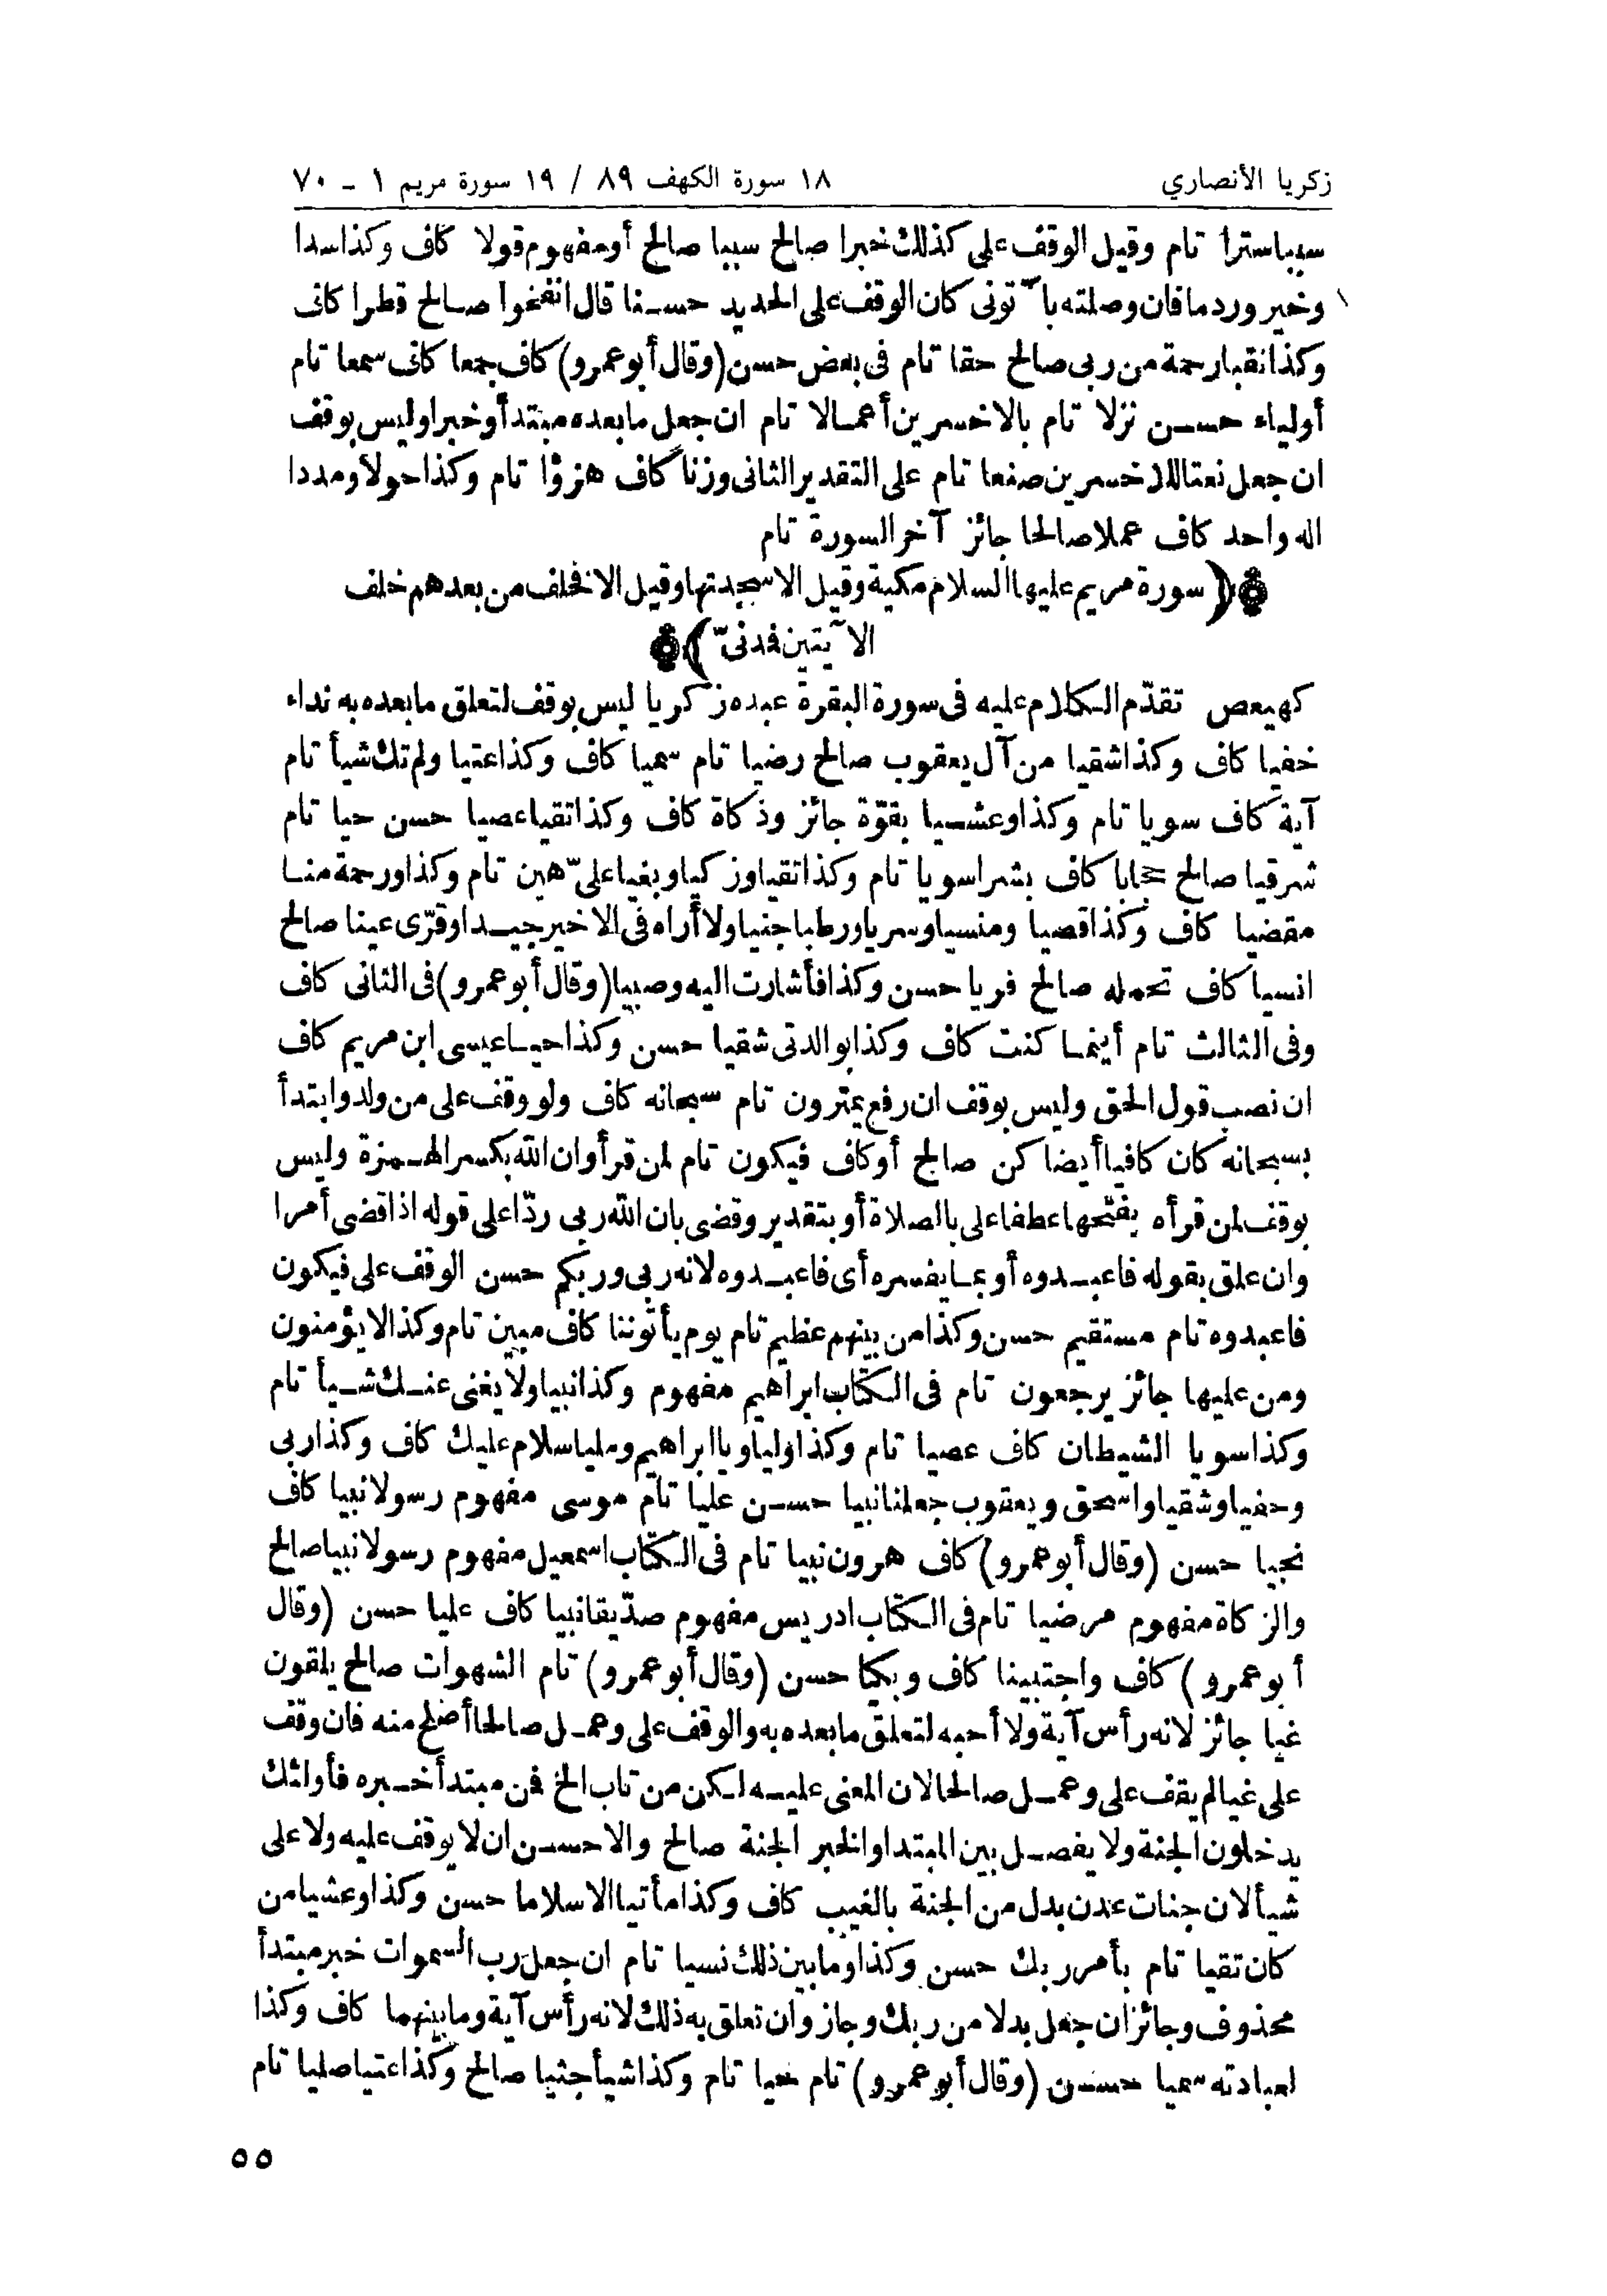 زكريا الأنصاري
١٨ سورة الكهف ٨٩ / ١٩ سورة مريم ١ - ٧٠
سببا سترا تام وقيل الوقف على كذلك خبرا صالح سببا صالح أو مفهوم قولا كاف وكذا سدا
وخير وردما فان وصلته با ّ تونى كان الوقف على الحديد حسنا قال انفخوا صالح قطرا كاف
وكذا نقبا رحمة من ربى صالح حقا تام فى بعض حسن (وقال أبو عمرو) كاف جمعا كاف سمعا تام
أولياء حسن نزلا تام بالاخسرين أعمالا تام ان جعل ما بعده مبتدأ وخبرا وليس بوقف
ان جعل نعتا للاخسرين صنعا تام على التقدير الثانى وزنا كاف هزوًا تام وكذا حولا ومددا
اله واحد كاف عملا صالحا جائز آخر السورة تام
(سورة مريم عليها السلام مكية وقيل الا سجدتها وقيل الا فخلف من بعدهم خلف
الآيتين فدنىّ)
كهيعص تقدّم الكلام عليه فى سورة البقرة عبده زكريا ليس بوقف لتعلق ما بعده به نداء
خفيا كاف وكذا شقيا من آل يعقوب صالح رضيا تام سميا كاف وكذا عتيا ولم تك شيأ تام
آية كاف سويا تام وكذا وعشيا بقوّة جائز وزكاة كاف وكذا تقيا عصيا حسن حيا تام
شرقيا صالح حجابا كاف بشرا سويا تام وكذا تقيا وزكيا وبغيا علىّ هين تام وكذا ورحمة منا
مقضيا كاف وكذا قصيا ومنسيا وسريا ورطبا جنيا ولا أراه فى الاخير جيدا وقرّى عينا صالح
انسيا كاف تحمله صالح فريا حسن وكذا فأشارت اليه وصبيا (وقال أبو عمرو) فى الثانى كاف
وفى الثالث تام أينما كنت كاف وكذا بوالدتى شقيا حسن وكذا حيا عيسى ابن مريم كاف
ان نصب قول الحق وليس بوقف ان رفع يمترون تام سبحانه كاف ولو وقف على من ولد وابتدأ
بسبحانه كان كافيا أيضا كن صالح أو كاف فيكون تام لمن قرأ وان الله بكسر الهمزة وليس
بوقف لمن قرأه بفتحها عطفا على بالصلاة أو بتقدير وقضى بان الله ربى ردّا على قوله اذا قضى أمرا
وان علق بقوله فاعبدوه أو بما يفسره أى فاعبدوه لانه ربى وربكم حسن الوقف على فيكون
فاعبدوه تام مستقيم حسن وكذا من بينهم عظيم تام يوم يأتوننا كاف مبين تام وكذا لا يؤمنون
ومن عليها جائز يرجعون تام فى الكتاب ابراهيم مفهوم وكذا نبيا ولا يغنى عنك شيأ تام
وكذا سويا الشيطان كاف عصيا تام وكذا وليا ويا ابراهيم ومليا سلام عليك كاف وكذا ربى
وحفيا وشقيا واسحق ويعقوب جعلنا نبيا حسن عليا تام موسى مفهوم رسولا نبيا كاف
نجيا حسن (وقال أبو عمرو) كاف هرون نبيا تام فى الكتاب اسمعيل مفهوم رسولا نبيا صالح
والزكاة مفهوم مرضيا تام فى الكتاب ادريس مفهوم صدّيقا نبيا كاف عليا حسن (وقال
أبو عمرو) كاف واجتبينا كاف وبكيا حسن (وقال أبو عمرو) تام الشهوات صالح يلقون
غيا جائز لانه رأس آية ولا أحبه لتعلق ما بعده به والوقف على وعمل صالحا أصلح منه فان وقف
على غيا لم يقف على وعمل صالحا لان المعنى عليه لكن من تاب الخ فمن مبتدأ خبره فأولئك
يدخلون الجنة ولا يفصل بين المبتدا والخبر الجنة صالح والاحسن ان لا يوقف عليه ولا على
شيأ لان جنات عدن بدل من الجنة بالغيب كاف وكذا مأتيا الا سلاما حسن وكذا وعشيا من
كان تقيا تام بأمر ربك حسن وكذا وما بين ذلك نسيا تام ان جعل رب السموات خبر مبتدأ
محذوف وجائز ان جعل بدلا من ربك وجاز وان تعلق به ذلك لانه رأس آية وما بينهما كاف وكذا
لعبادته سميا حسن (وقال أبو عمرو) تام حيا تام وكذا شيأ جثيا صالح وكذا عتيا صليا تام
٥٥